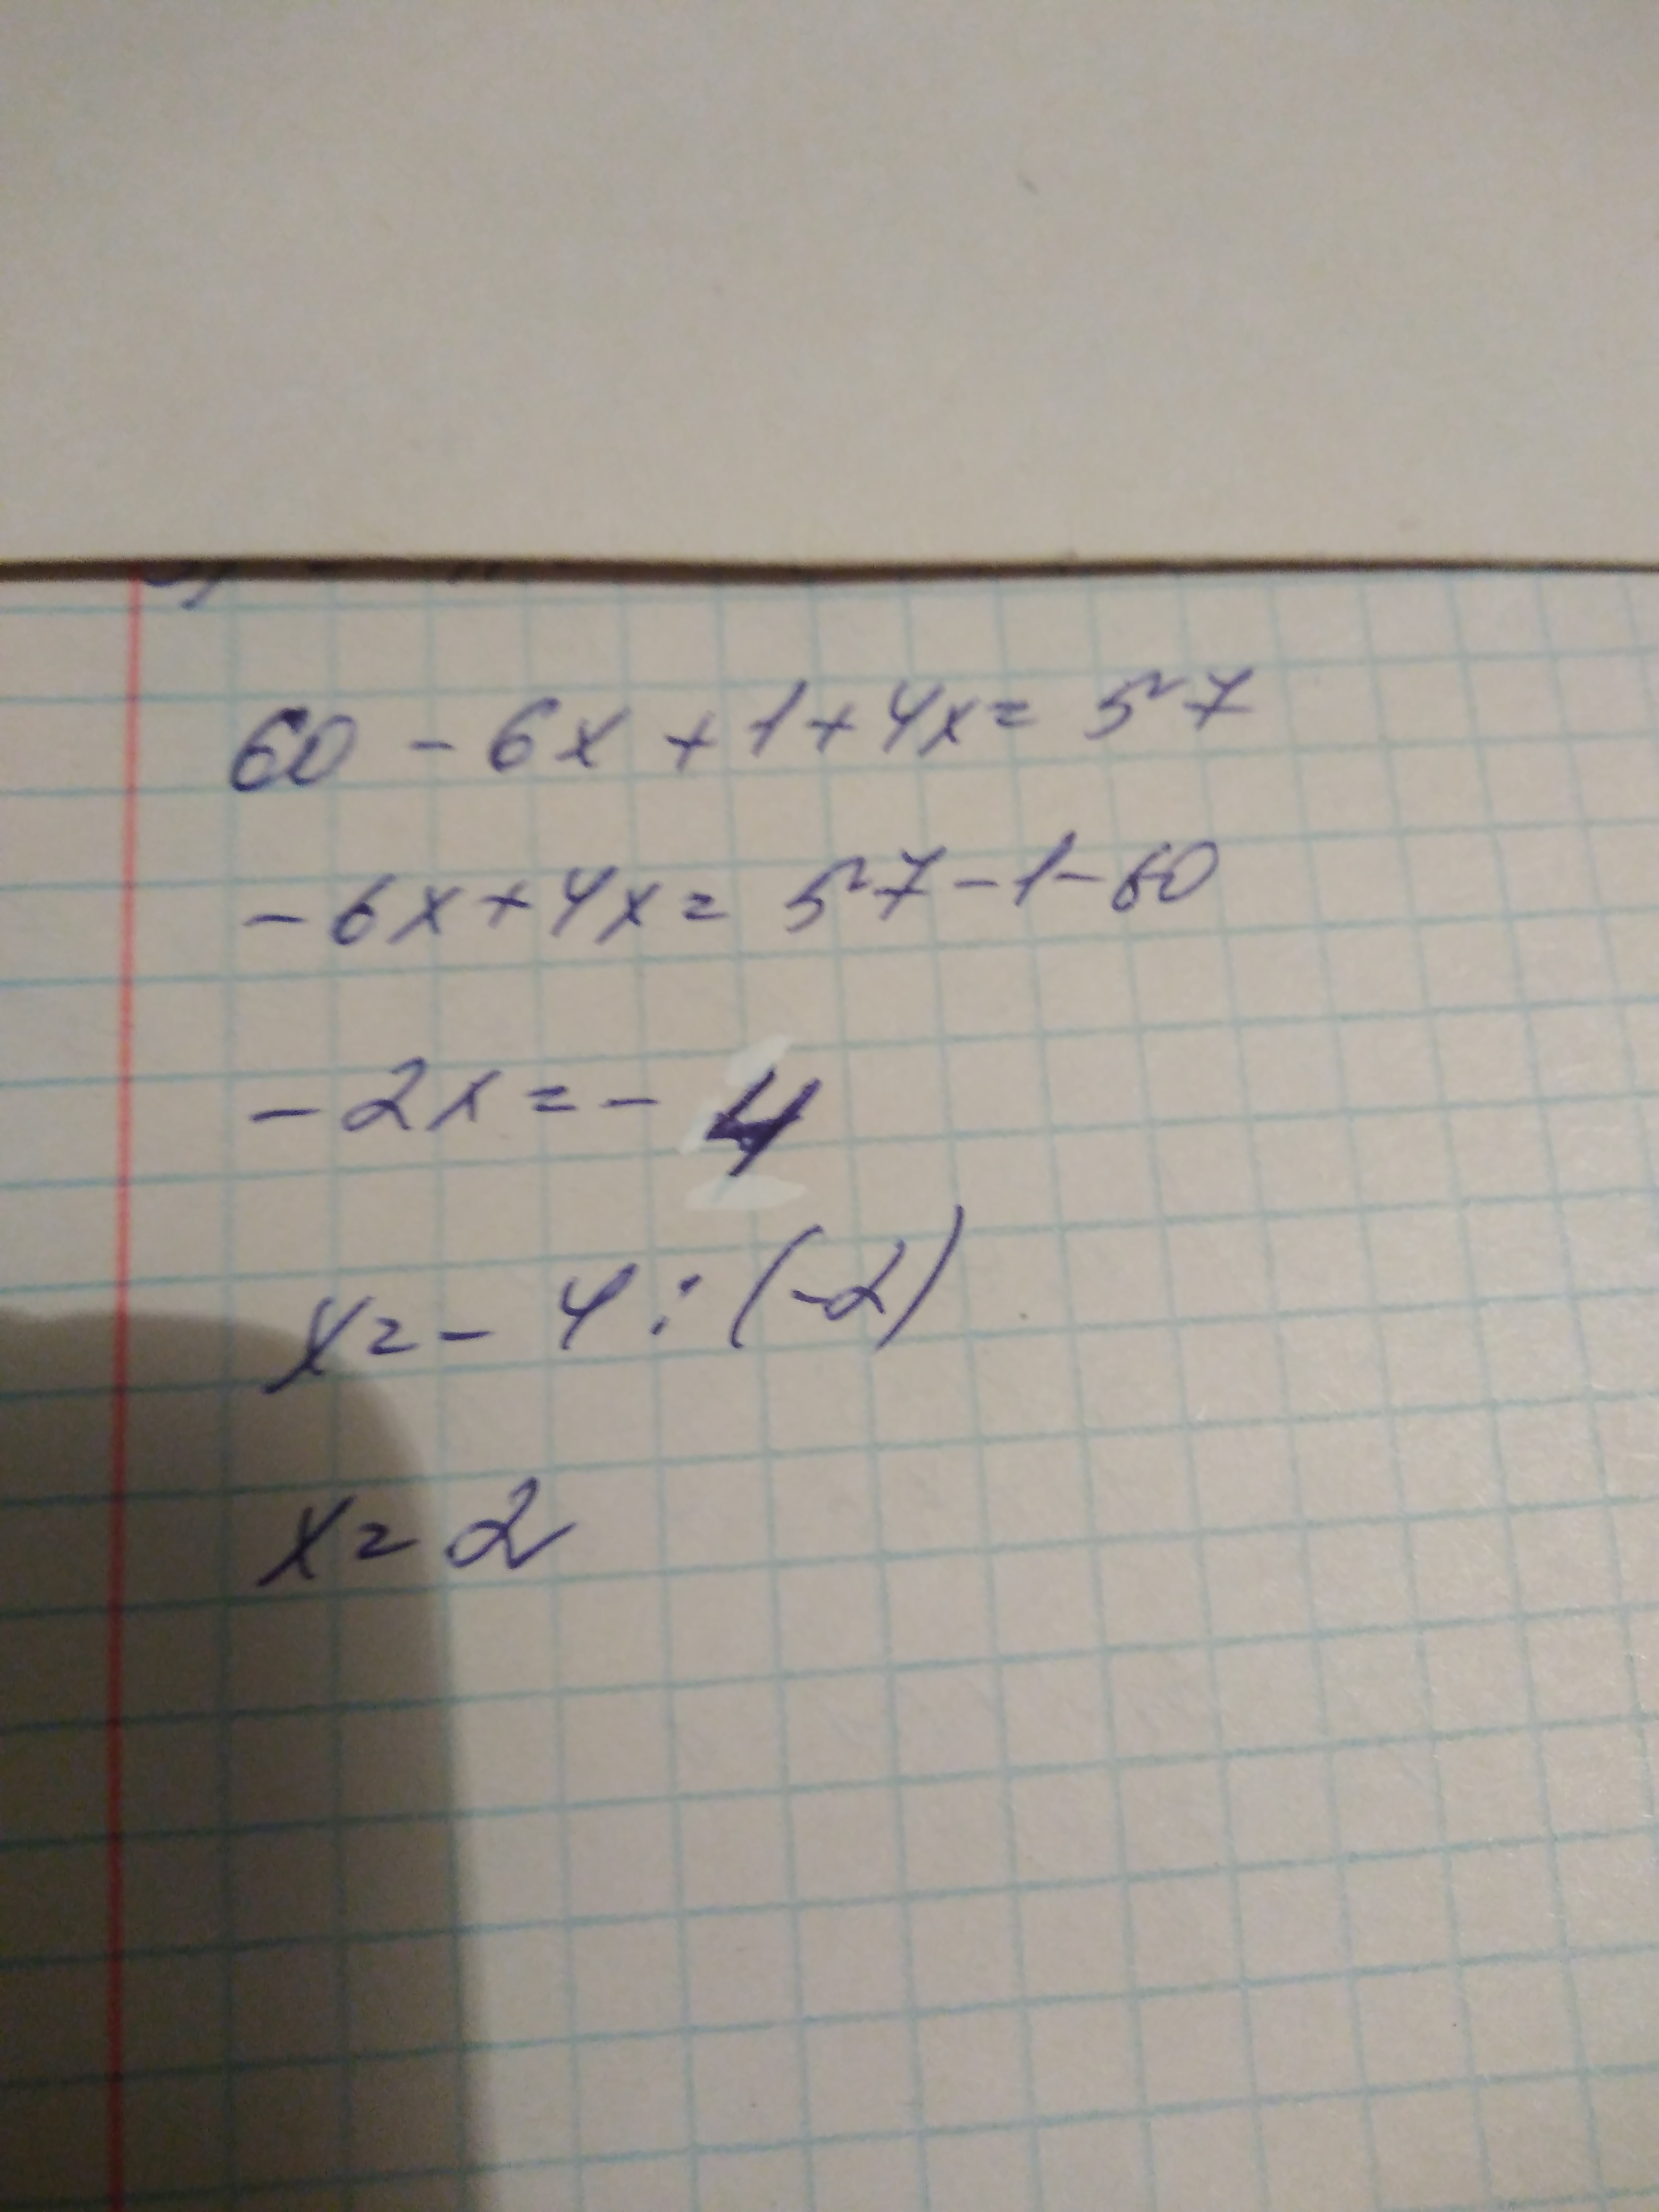 60 - 6x + 1 + 4x = 57
- 6x + 4x = 57 - 1 - 60
- 2x = - 4
x = - 4 : (-2)
x = 2